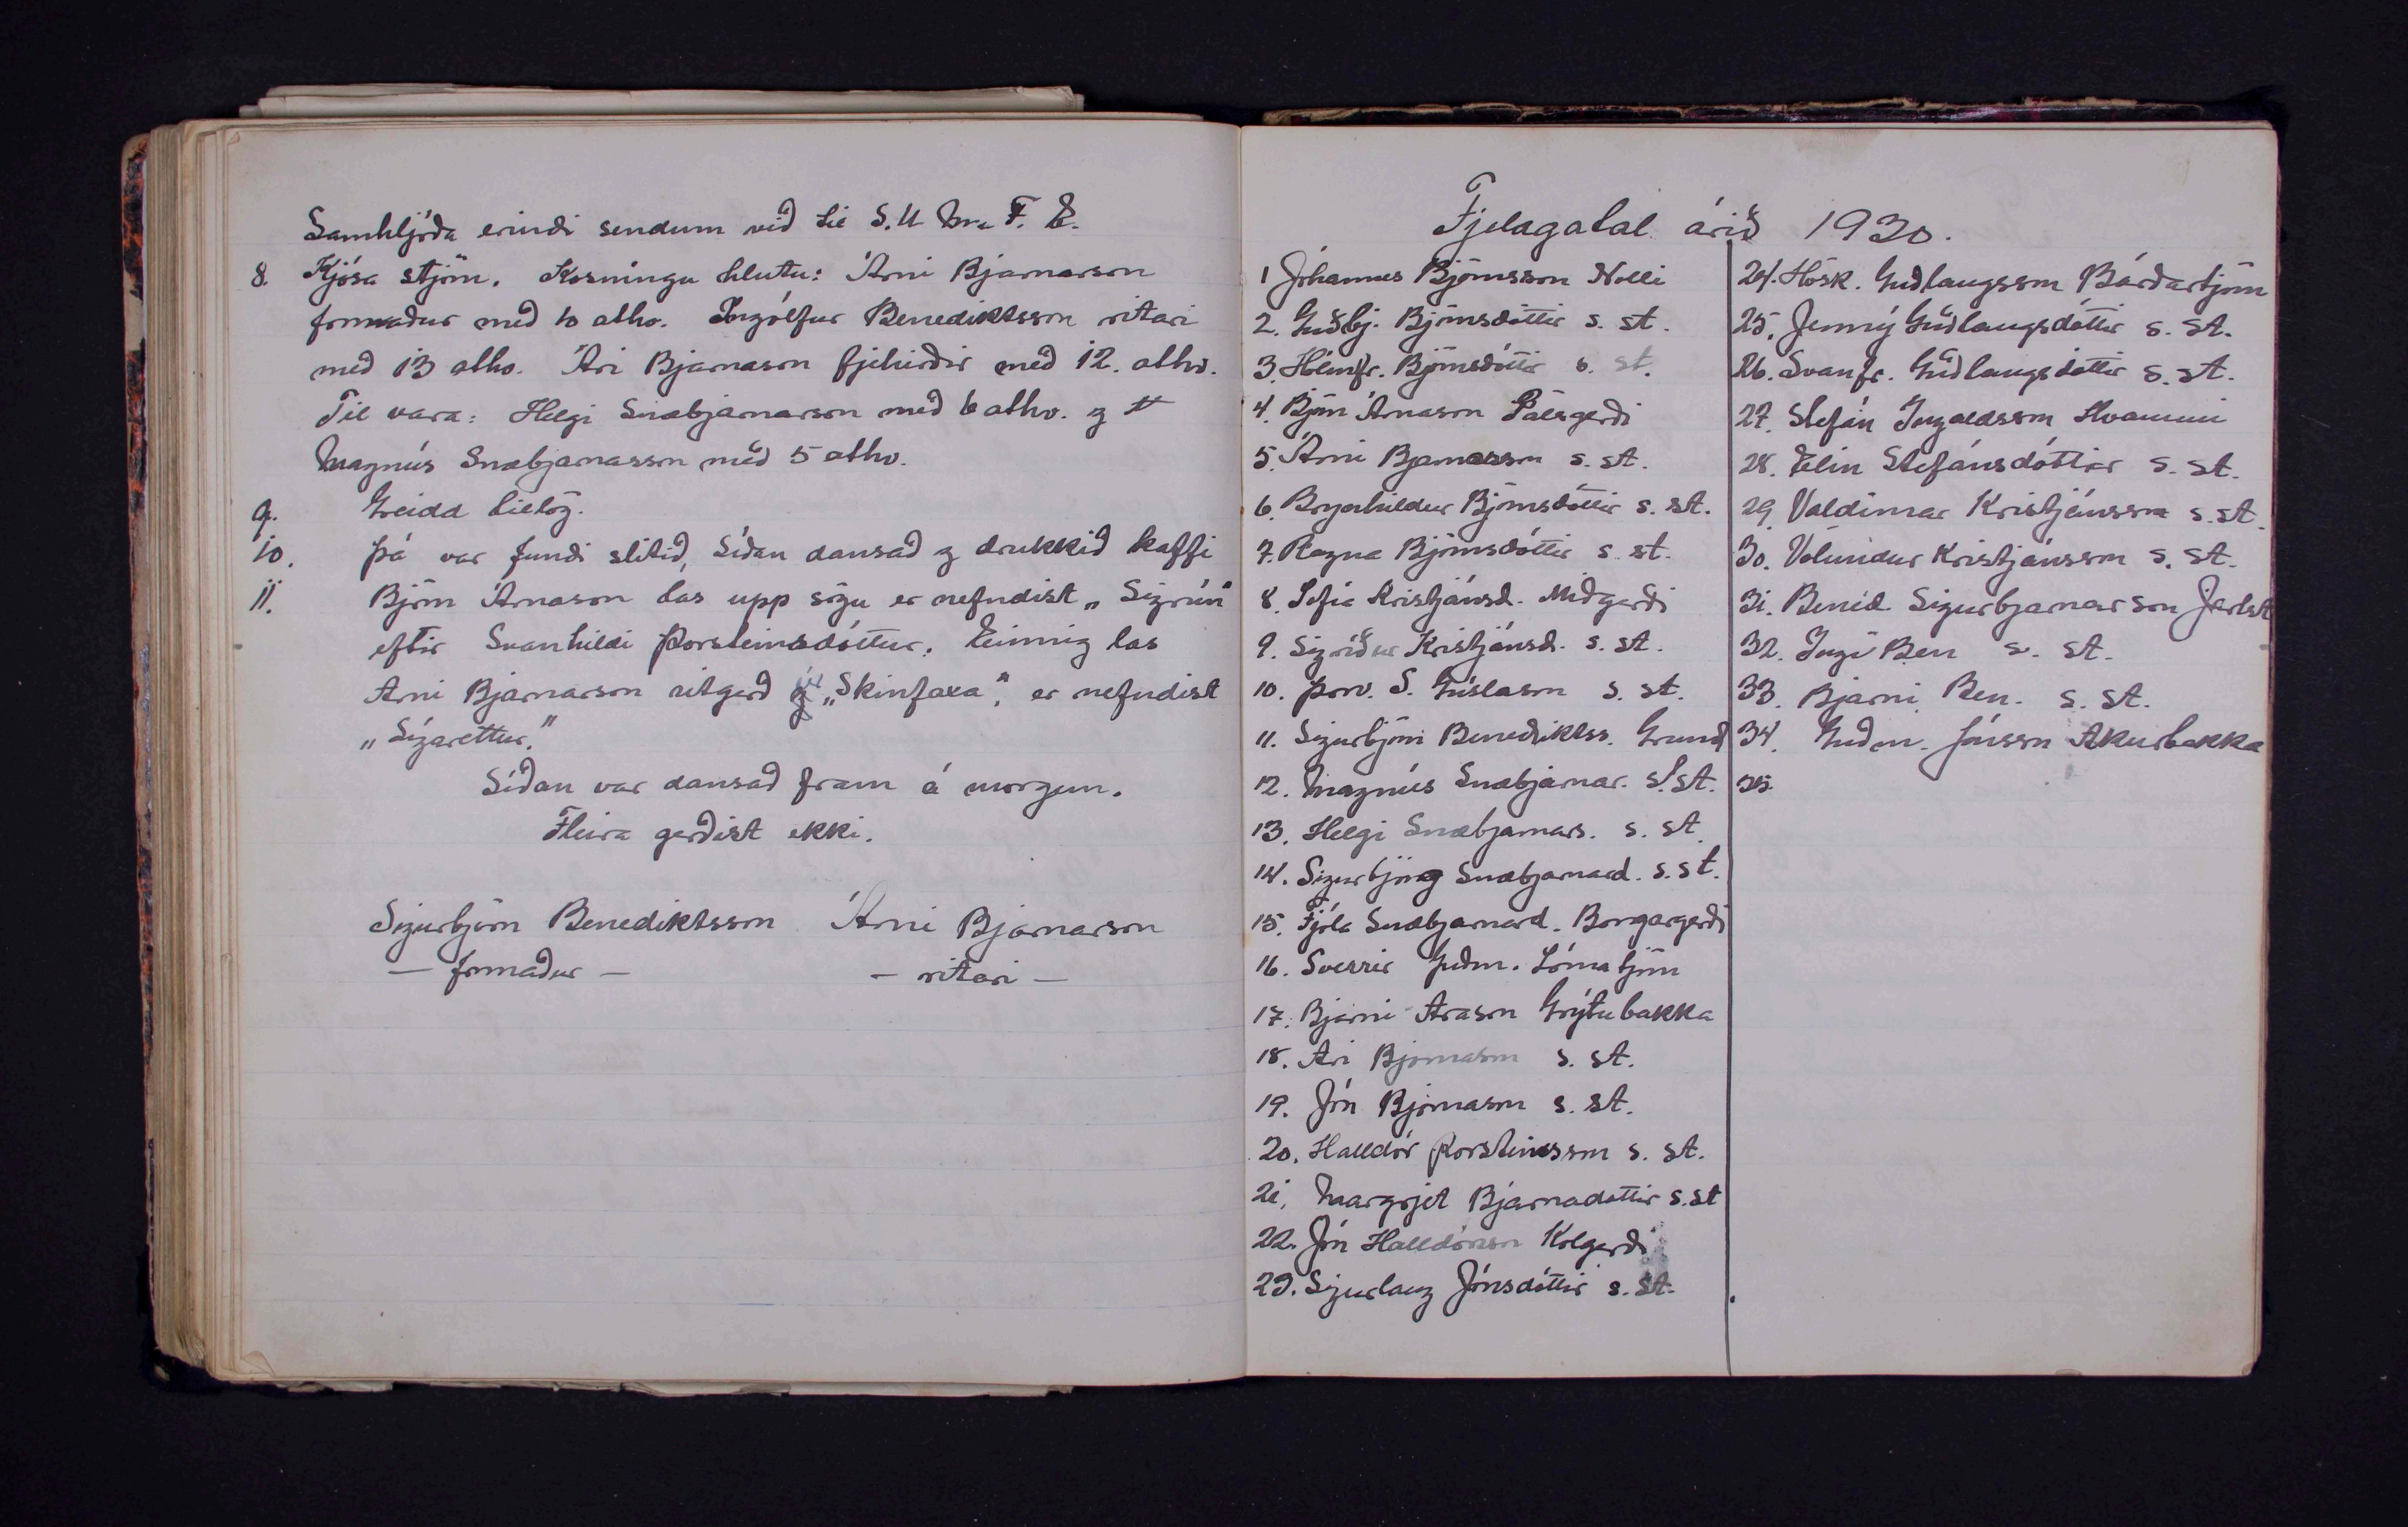 Samhljóða erindi sendum við til S. U. M. F. E.
8. Kjósa stjórn. Kosningu hlutu: Árni Bjarnarson
formaður með 10 atkv. Ingólfur Benediktsson ritari
með 13 atkv. Ari Bjarnason fjehirðir með 12. atkv.
Til vara: Helgi Snæbjarnarson með 6 atkv. og
Magnús Snæbjarnasson með 5 atkv.
9. Greidd tillög.
10. Þá var fundi slitið, síðan dansað og drukkið kaffi
11. Björn Árnason las upp sögu er nefndist „Sigrún"
eftir Svanhildi Þorsteinsdóttur. Einnig las
Árni Bjarnarson ritgerð úr „Skinfaxa", er nefndist
„Sígarettur."
Síðan var dansað fram á morgun.
Fleira gerðist ekki.
Sigurbjörn Benediktsson Árni Bjarnarson
— formaður — — ritari —
Fjelagatal árið 1930.
1 Jóhannes Björnsson Nolli
2. Guðbj. Björnsdóttir s. st.
3. Hólmfr. Björnsdóttir s. st.
4. Björn Árnason Pálsgerði
5. Árni Bjarnasson s. st.
6. Brynhildur Björnsdóttir s. st.
7. Ragna Björnsdóttir s. st.
8. Sofía Kristjánsd. Miðgerði
9. Sigríður Kristjánsd. s. st.
10. Þorv. S. Gíslason s. st.
11. Sigurbjörn Benediktss. Grund
12. Magnús Snæbjarnar. s. st.
13. Helgi Snæbjarnars. s. st.
14. Sigurbjörg Snæbjarnard. s. st.
15. Fjóla Snæbjarnard. Borgargerði
16. Sverrir Guðm. Lómatjörn
17. Bjarni Arason Grýtubakka
18. Ari Bjarnason s. st.
19. Jón Bjarnason s. st.
20. Halldór Þorsteinsson s. st.
21. Margrjet Bjarnadóttir s. st
22. Jón Halldórsson Kolgerði
23. Sigurlaug Jónsdóttir s. st.
24. Hösk. Guðlaugsson Bárðartjörn
25. Jenný Guðlaugsdóttir s. st.
26. Svanfr. Guðlaugsdóttir s. st.
27. Stefán Ingjaldsson Hvammi
28. Elín Stefánsdóttir s. st.
29. Valdimar Kristjánsson s. st.
30. Völundur Kristjánsson s. st.
31. Benid. Sigurbjarnarson Jarlst
32. Ingi Ben s. st.
33. Bjarni Ben. s. st.
34. Guðm. Jónsson Akurbakka
35.